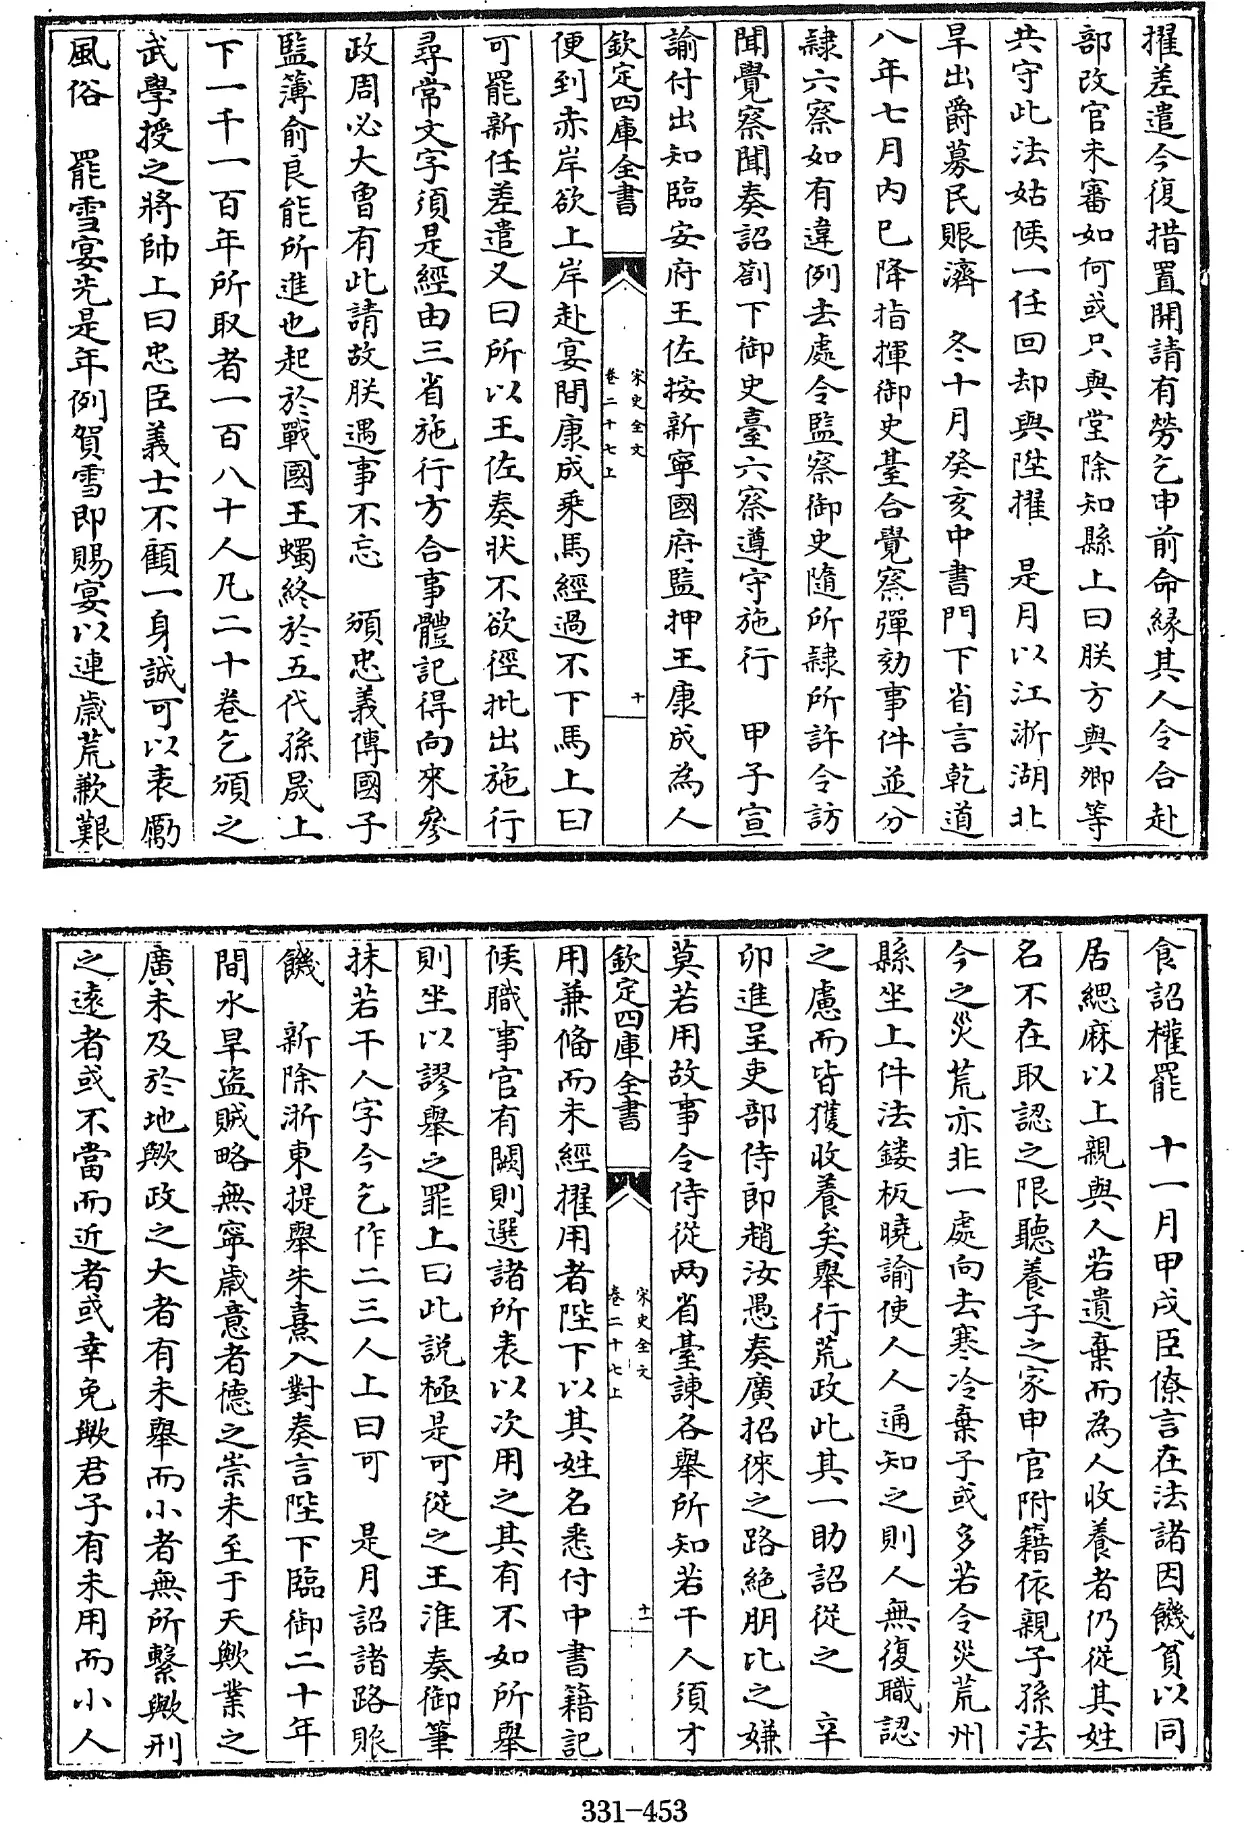 擢差遣今復措置開請有勞乞申前命縁其人令合赴
部改官未審如何或只與堂除知縣上曰朕方與卿等
共守此法姑候一任回却與陞擢　是月以江浙湖北
旱出爵募民賑濟　冬十月癸亥中書門下省言乾道
八年七月内已降指揮御史䑓合覺察彈劾事件並分
隷六察如有違例去處令監察御史隨所隷所許令訪
聞覺察聞奏詔劄下御史臺六察遵守施行　甲子宣
諭付出知臨安府王佐按新寧國府監押王康成為人
欽定四庫全書
宋史全文
卷二十七上
十
便到赤岸欲上岸赴宴間康成乘馬經過不下馬上曰
可罷新任差遣又曰所以王佐奏狀不欲徑批出施行
尋常文字須是經由三省施行方合事體記得向來參
政周必大曽有此請故朕遇事不忘　頒忠義傳國子
監簿俞良能所進也起於戰國王蠋終於五代孫晟上
下一千一百年所取者一百八十人凡二十卷乞頒之
武學授之將帥上曰忠臣義士不顧一身誠可以表勵
風俗　罷雪宴先是年例賀雪即賜宴以連歲荒歉艱
食詔權罷　十一月甲戌臣僚言在法諸因饑貧以同
居緦麻以上親與人若遺棄而為人收養者仍從其姓
名不在取認之限聽養子之家申官附籍依親子孫法
今之災荒亦非一處向去寒冷棄子或多若令災荒州
縣坐上件法鏤板曉諭使人人通知之則人無復職認
之慮而皆獲收養矣舉行荒政此其一助詔從之　辛
卯進呈吏部侍郎趙汝愚奏廣招徠之路絶朋比之嫌
莫若用故事令侍從两省臺諫各舉所知若干人須才
欽定四庫全書
宋史全文
卷二十七上
十一
用兼備而未經擢用者陛下以其姓名悉付中書籍記
候職事官有闕則選諸所表以次用之其有不如所舉
則坐以謬舉之罪上曰此説極是可從之王淮奏御筆
抹若干人字今乞作二三人上曰可　是月詔諸路賑
饑　新除浙東提舉朱熹入對奏言陛下臨御二十年
間水旱盗賊略無寧歲意者德之崇未至于天歟業之
廣未及於地歟政之大者有未舉而小者無所繫歟刑
之遠者或不當而近者或幸免歟君子有未用而小人
331-453